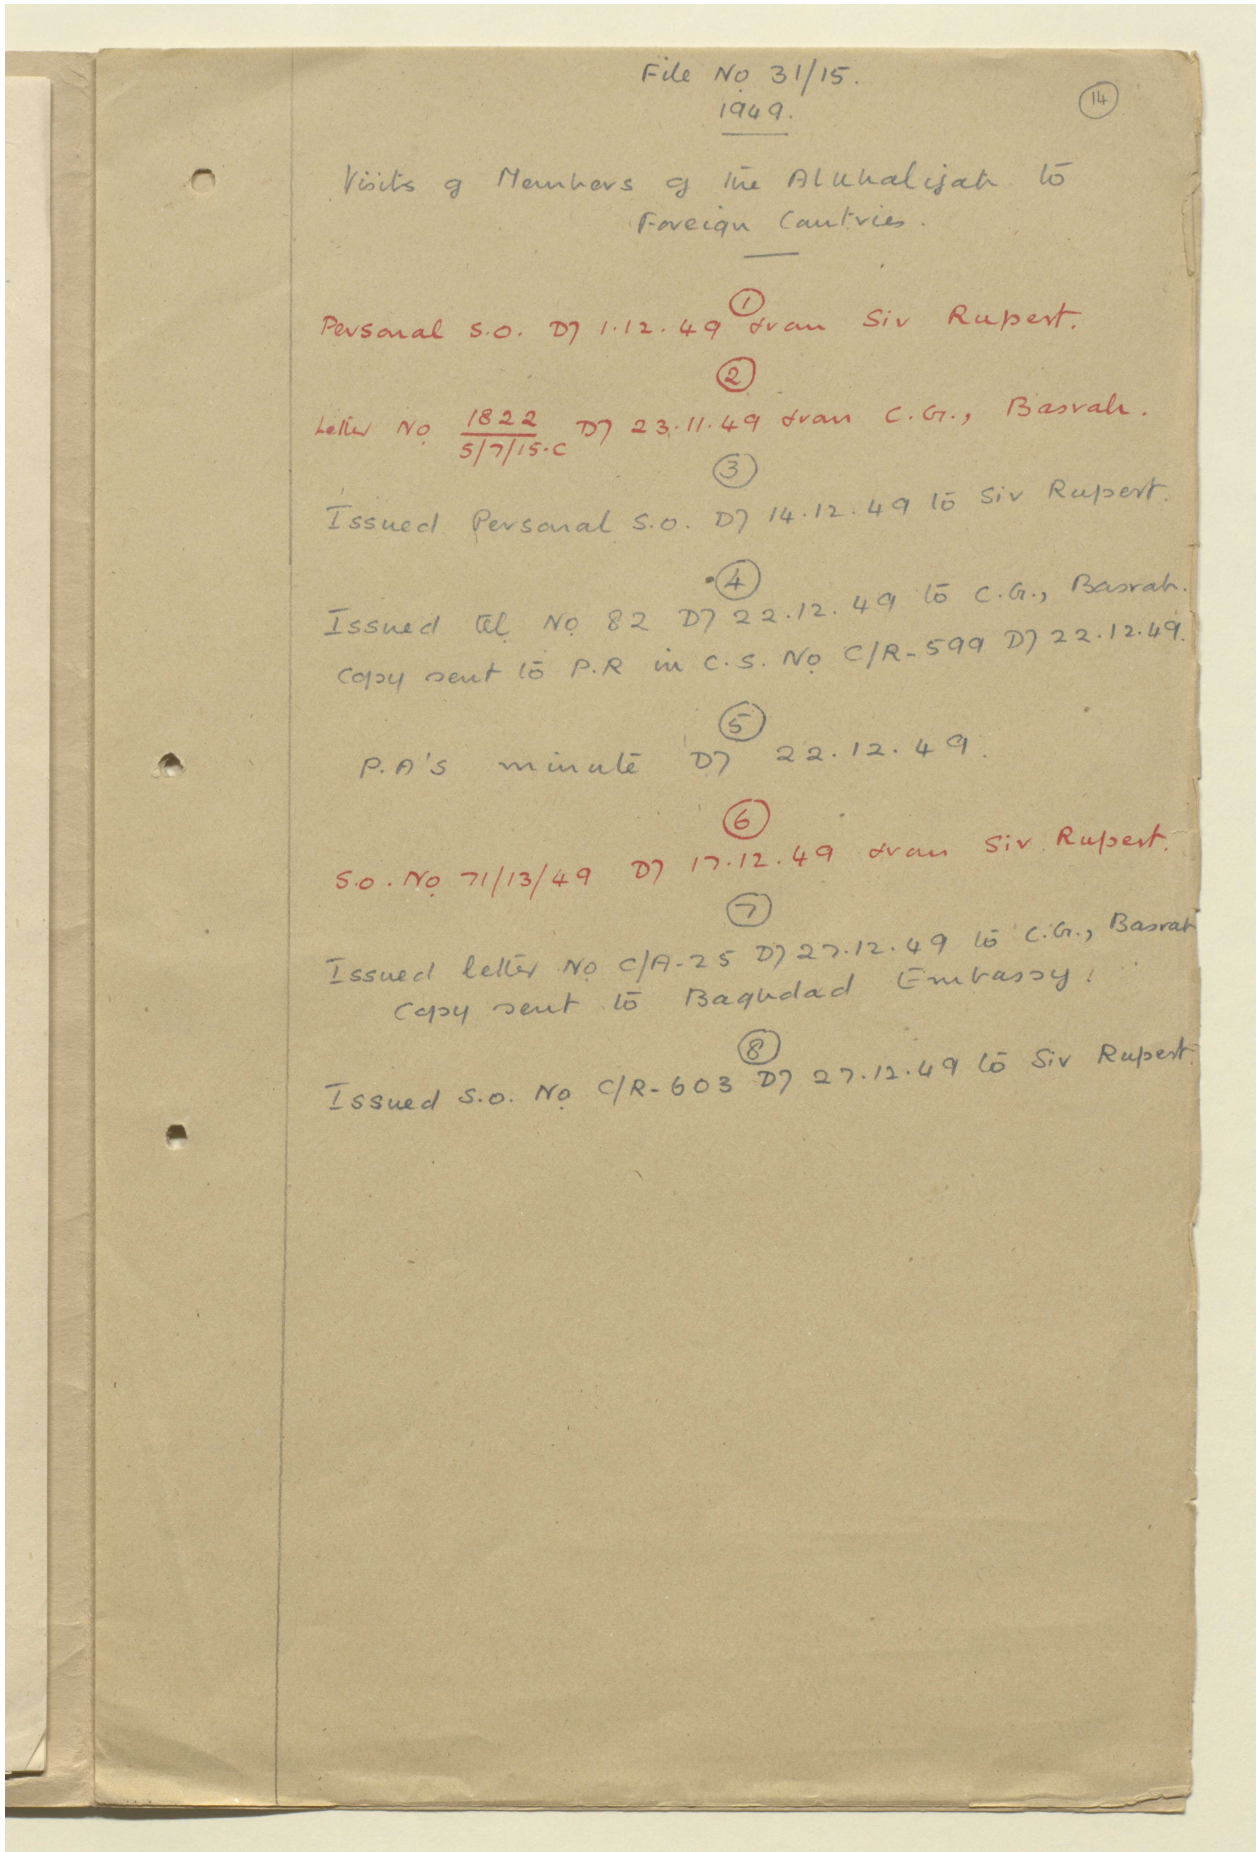 File No 31/15.
14
1949.
Visits of Members of the Alkhalifah to
Foreign Countries.
1
Personal S.O. D/ 1.12.49 from Sir Rupert.
2
Letter No 1822
5/7/15.C D/ 23.11.49 from C.G., Basrah.
3
Issued Personal S.O. D/ 14.12.49 to Sir Rupert.
4
Issued tel No 82 D/ 22.12.49 to C.G., Basrah.
Copy sent to P.R in C.S. No C/R-599 D/ 22.12.49.
5
P.A's minute D/ 22.12.49.
6
S.O. No 71/13/49 D/ 17.12.49 from Sir Rupert.
7
Issued letter No C/A-25 D/ 27.12.49 to C.G., Basrah
Copy sent to Baghdad Embassy.
8
Issued S.O. No C/R-603 D/ 27.12.49 to Sir Rupert.